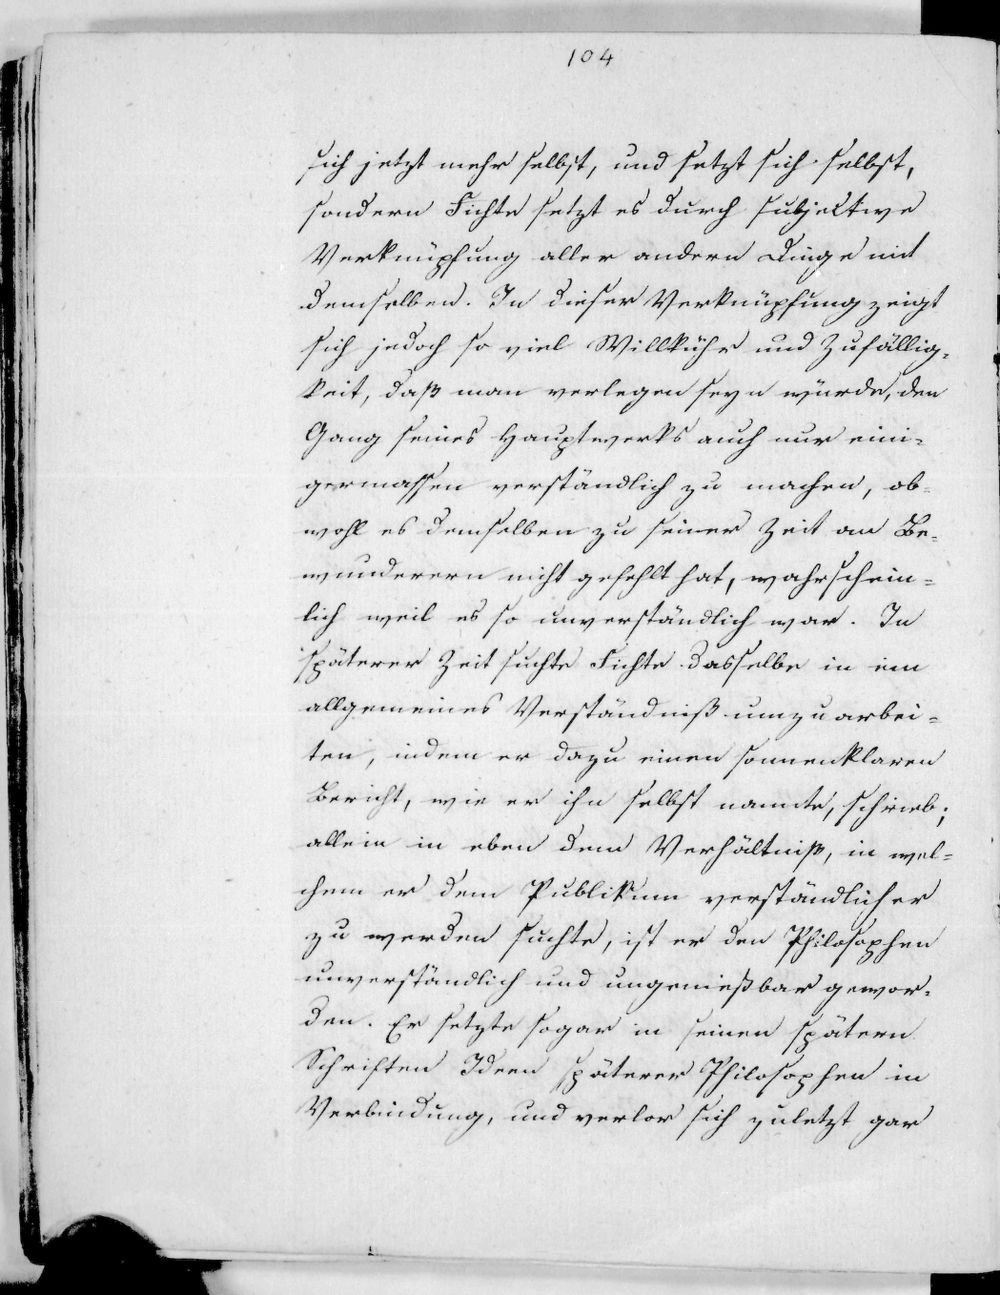 104
sich jetzt mehr selbst, und setzt sich selbst,
sondern Fichte setzt es durch subjektive
Verknüpfung aller andern Dinge mit
demselben. In dieser Verknüpfung zeigt
sich jedoch so viel Willkühr und Zufällig-
keit, daß man verlegen seyn würde, den
Gang seines Hauptwerks auch nur eini-
germassen verständlich zu machen, ob-
wohl es demselben zu seiner Zeit an Be-
wunderern nicht gefehlt hat, wahrschein-
lich weil es so unverständlich war. In
späterer Zeit suchte Fichte dasselbe in ein
allgemeines Verständniß umzuarbei-
ten, indem er dazu einen sonnenklaren
Bericht, wie er ihn selbst nannte, schrieb;
allein in eben dem Verhältniß, in wel-
chem er dem Publikum verständlicher
zu werden suchte, ist er den Philosophen
unverständlich und ungenießbar gewor-
den. Er setzte sogar in seinen spätern
Schriften Ideen späterer Philosophen in
Verbindung, und verlor sich zuletzt gar